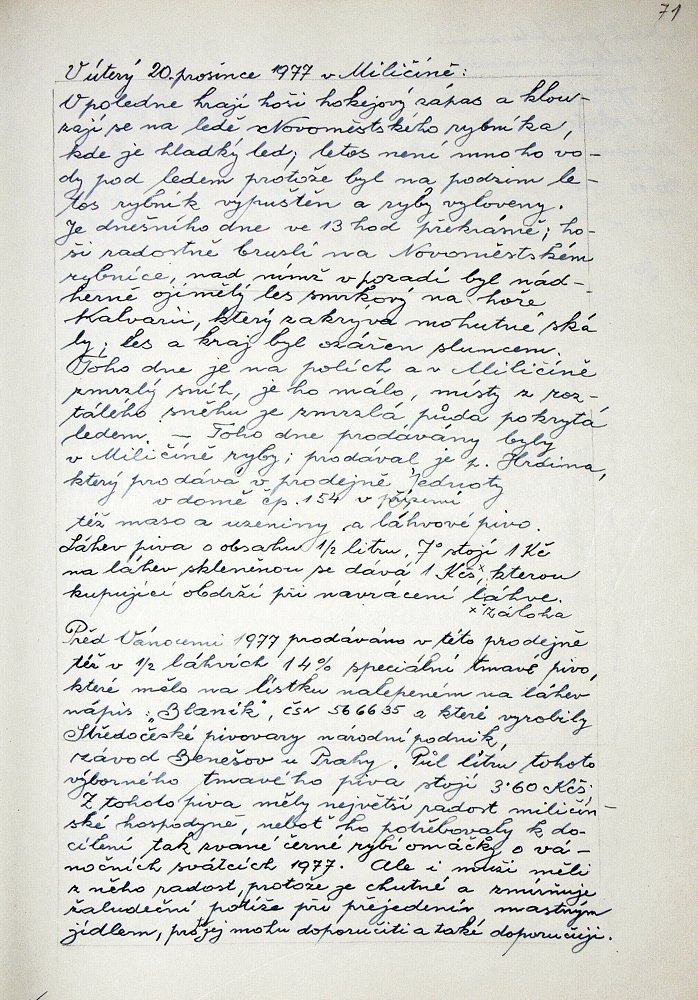 71
V úterý 20. prosince 1977 v Miličíně:
V poledne hrají hoši hokejový zápas a klou-
zají se na ledě Novoměstského rybníka,
kde je hladký led; letos není mnoho vo-
dy pod ledem protože byl na podzim le-
tos rybník vypuštěn a ryby vyloveny.
Je dnešního dne ve 13 hod překrásně; ho-
ši radostně bruslí na Novoměstském
rybníce, nad nímž v pozadí byl nád-
herně ojínělý les smrkový na hoře
Kalvarii, který zakrývá mohutné ská
ly; les a kraj byl ozářen sluncem.
Toho dne je na polích a v Miličíně
zmrzlý sníh, je ho málo, místy z roz-
tálého sněhu je zmrzlá půda pokrytá
ledem. — Toho dne prodávány byly
v Miličíně ryby; prodával je p. Hrdina,
který prodává v prodejně Jednoty
v domě čp. 154 v přízemí
též maso a uzeniny a láhvové pivo.
Láhev piva o obsahu 1/2 litru, 7° stojí 1 Kč
na láhev skleněnou se dává 1 Kčs,x kterou
kupující obdrží při navrácení láhve.
x záloha
Před Vánocemi 1977 prodáváno v této prodejně
též v 1/2 láhvích 14% speciální tmavé pivo,
které mělo na lístku nalepeném na láhev
nápis: „Blaník", ČSN 566635 a které vyrobily
Středočeské pivovary národní podnik,
závod Benešov u Prahy. Půl litru tohoto
výborného tmavého piva stojí 3·60 Kčs.
Z tohoto piva měly největší radost miličín-
ské hospodyně, neboť ho potřebovaly k do-
cílení tak zvané černé rybí omáčky o vá-
nočních svátcích 1977. Ale i muži měli
z něho radost, protože je chutné a zmírňuje
žaludeční potíže při přejedením mastným
jídlem, pro jej mohu doporučiti a také doporučuji.